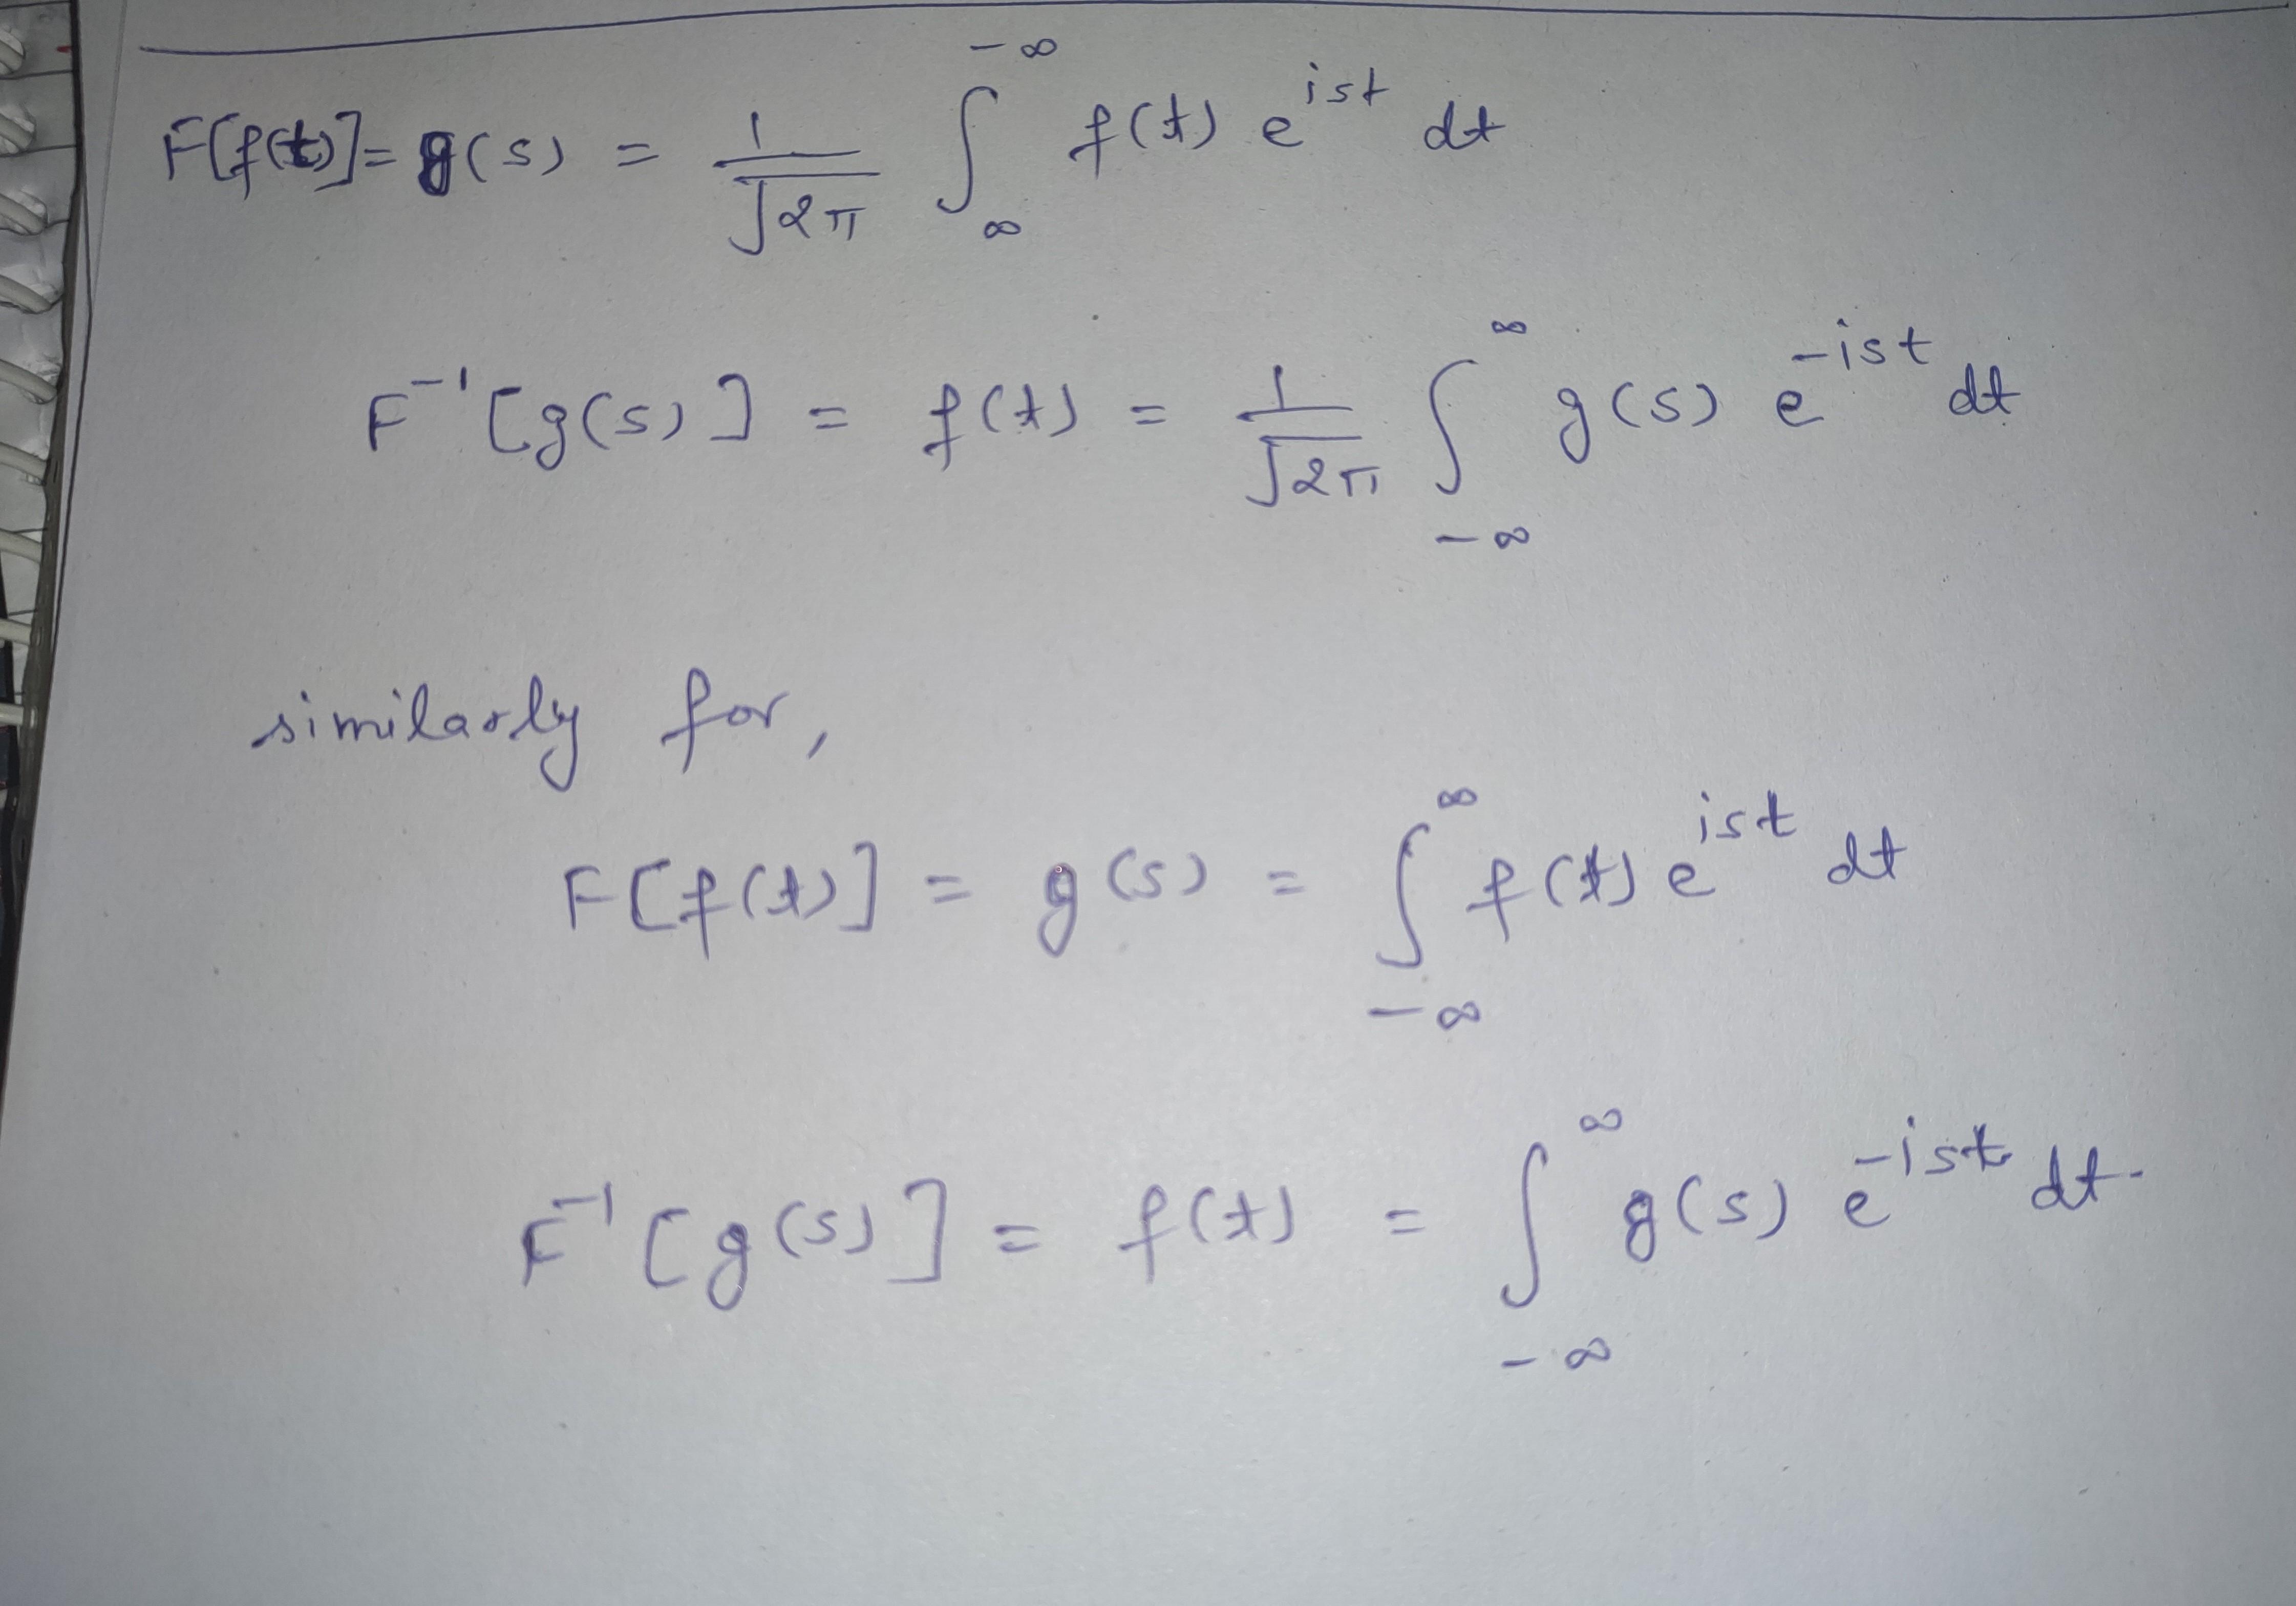 F[f(t)] = g(s) = 1/√2π ∫_{∞}^{-∞} f(t) e^{ist} dt
F^{-1}[g(s)] = f(t) = 1/√2π ∫_{-∞}^{∞} g(s) e^{-ist} dt
similarly for,
F[f(t)] = g(s) = ∫_{-∞}^{∞} f(t) e^{ist} dt
F^{-1}[g(s)] = f(t) = ∫_{-∞}^{∞} g(s) e^{-ist} dt.